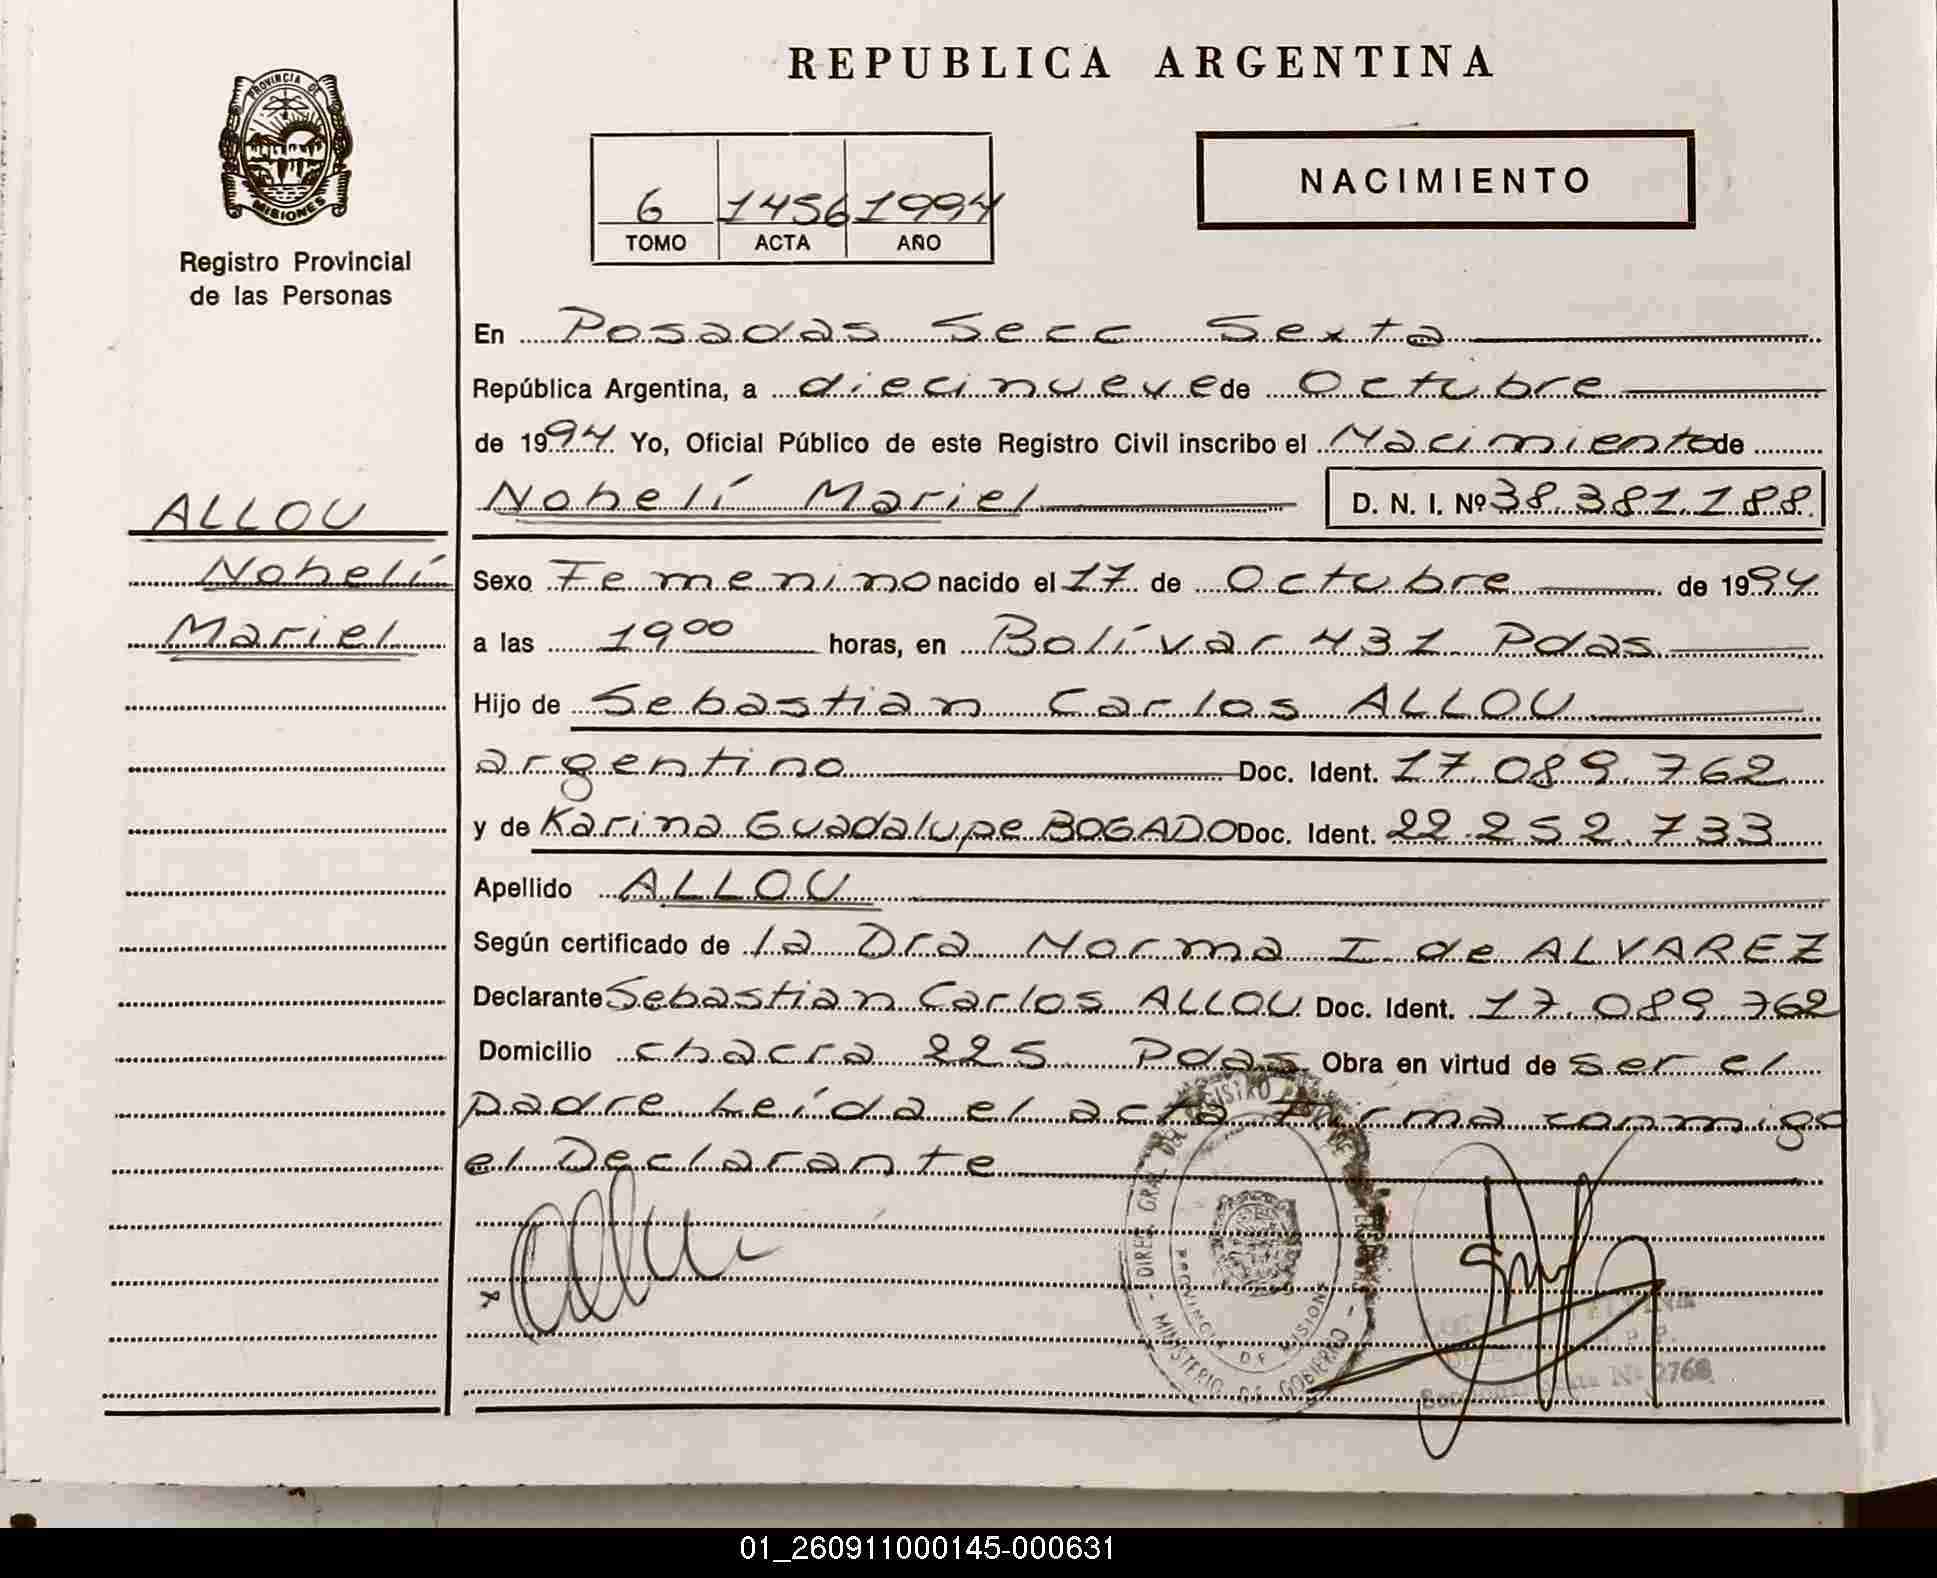 REPUBLICA ARGENTINA
PROVINCIA DE
MISIONES
Registro Provincial
de las Personas
6 1456 1994
TOMO ACTA AÑO
NACIMIENTO
En Posadas Secc Sexta
República Argentina, a diecinueve de Octubre
de 1994 Yo, Oficial Público de este Registro Civil inscribo el Nacimiento de
Nohelí Mariel D. N. I. Nº 38.381.188
ALLOU
Nohelí
Mariel
Sexo Femenino nacido el 17 de Octubre de 1994
a las 19 00 horas, en Bolívar 431 Pdas
Hijo de Sebastian Carlos ALLOU
argentino Doc. Ident. 17.089.762
y de Karina Guadalupe BOGADO Doc. Ident. 22.252.733
Apellido ALLOU
Según certificado de la Dra Norma I de ALVAREZ
Declarante Sebastian Carlos ALLOU Doc. Ident. 17.089.762
Domicilio chacra 225 Pdas Obra en virtud de ser el
padre Leída el acta Firma conmigo
el Declarante
PROVINCIA DE MISIONES
MINISTERIO DE GOBIERNO
Nº 2768
01_260911000145-000631